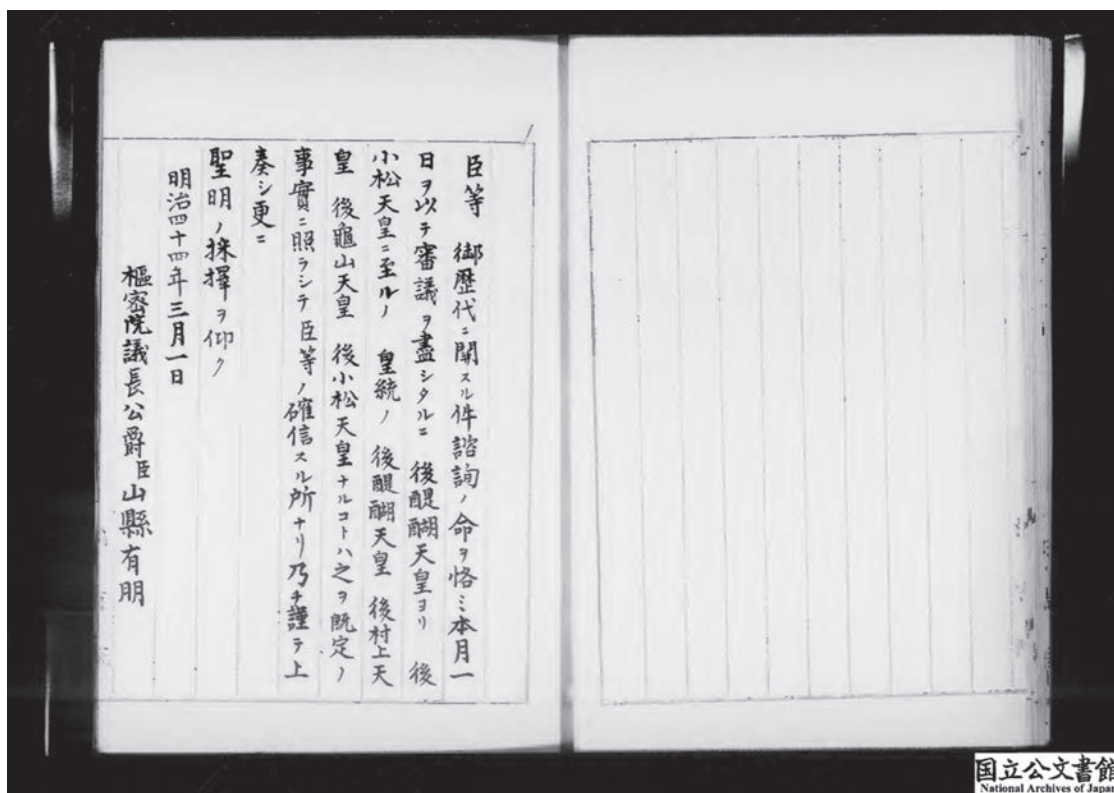 臣等　御歴代ニ關スル件諮詢ノ命ヲ恪ミ本月一
日ヲ以テ審議ヲ盡シタルニ　後醍醐天皇ヨリ　後
小松天皇ニ至ルノ　皇統ノ　後醍醐天皇　後村上天
皇　後龜山天皇　後小松天皇ナルコトハ之ヲ既定ノ
事實ニ照ラシテ臣等ノ確信スル所ナリ乃チ謹テ上
奏シ更ニ
聖明ノ採擇ヲ仰ク
明治四十四年三月一日
樞密院議長公爵臣山縣有朋
国立公文書館
National Archives of Japan